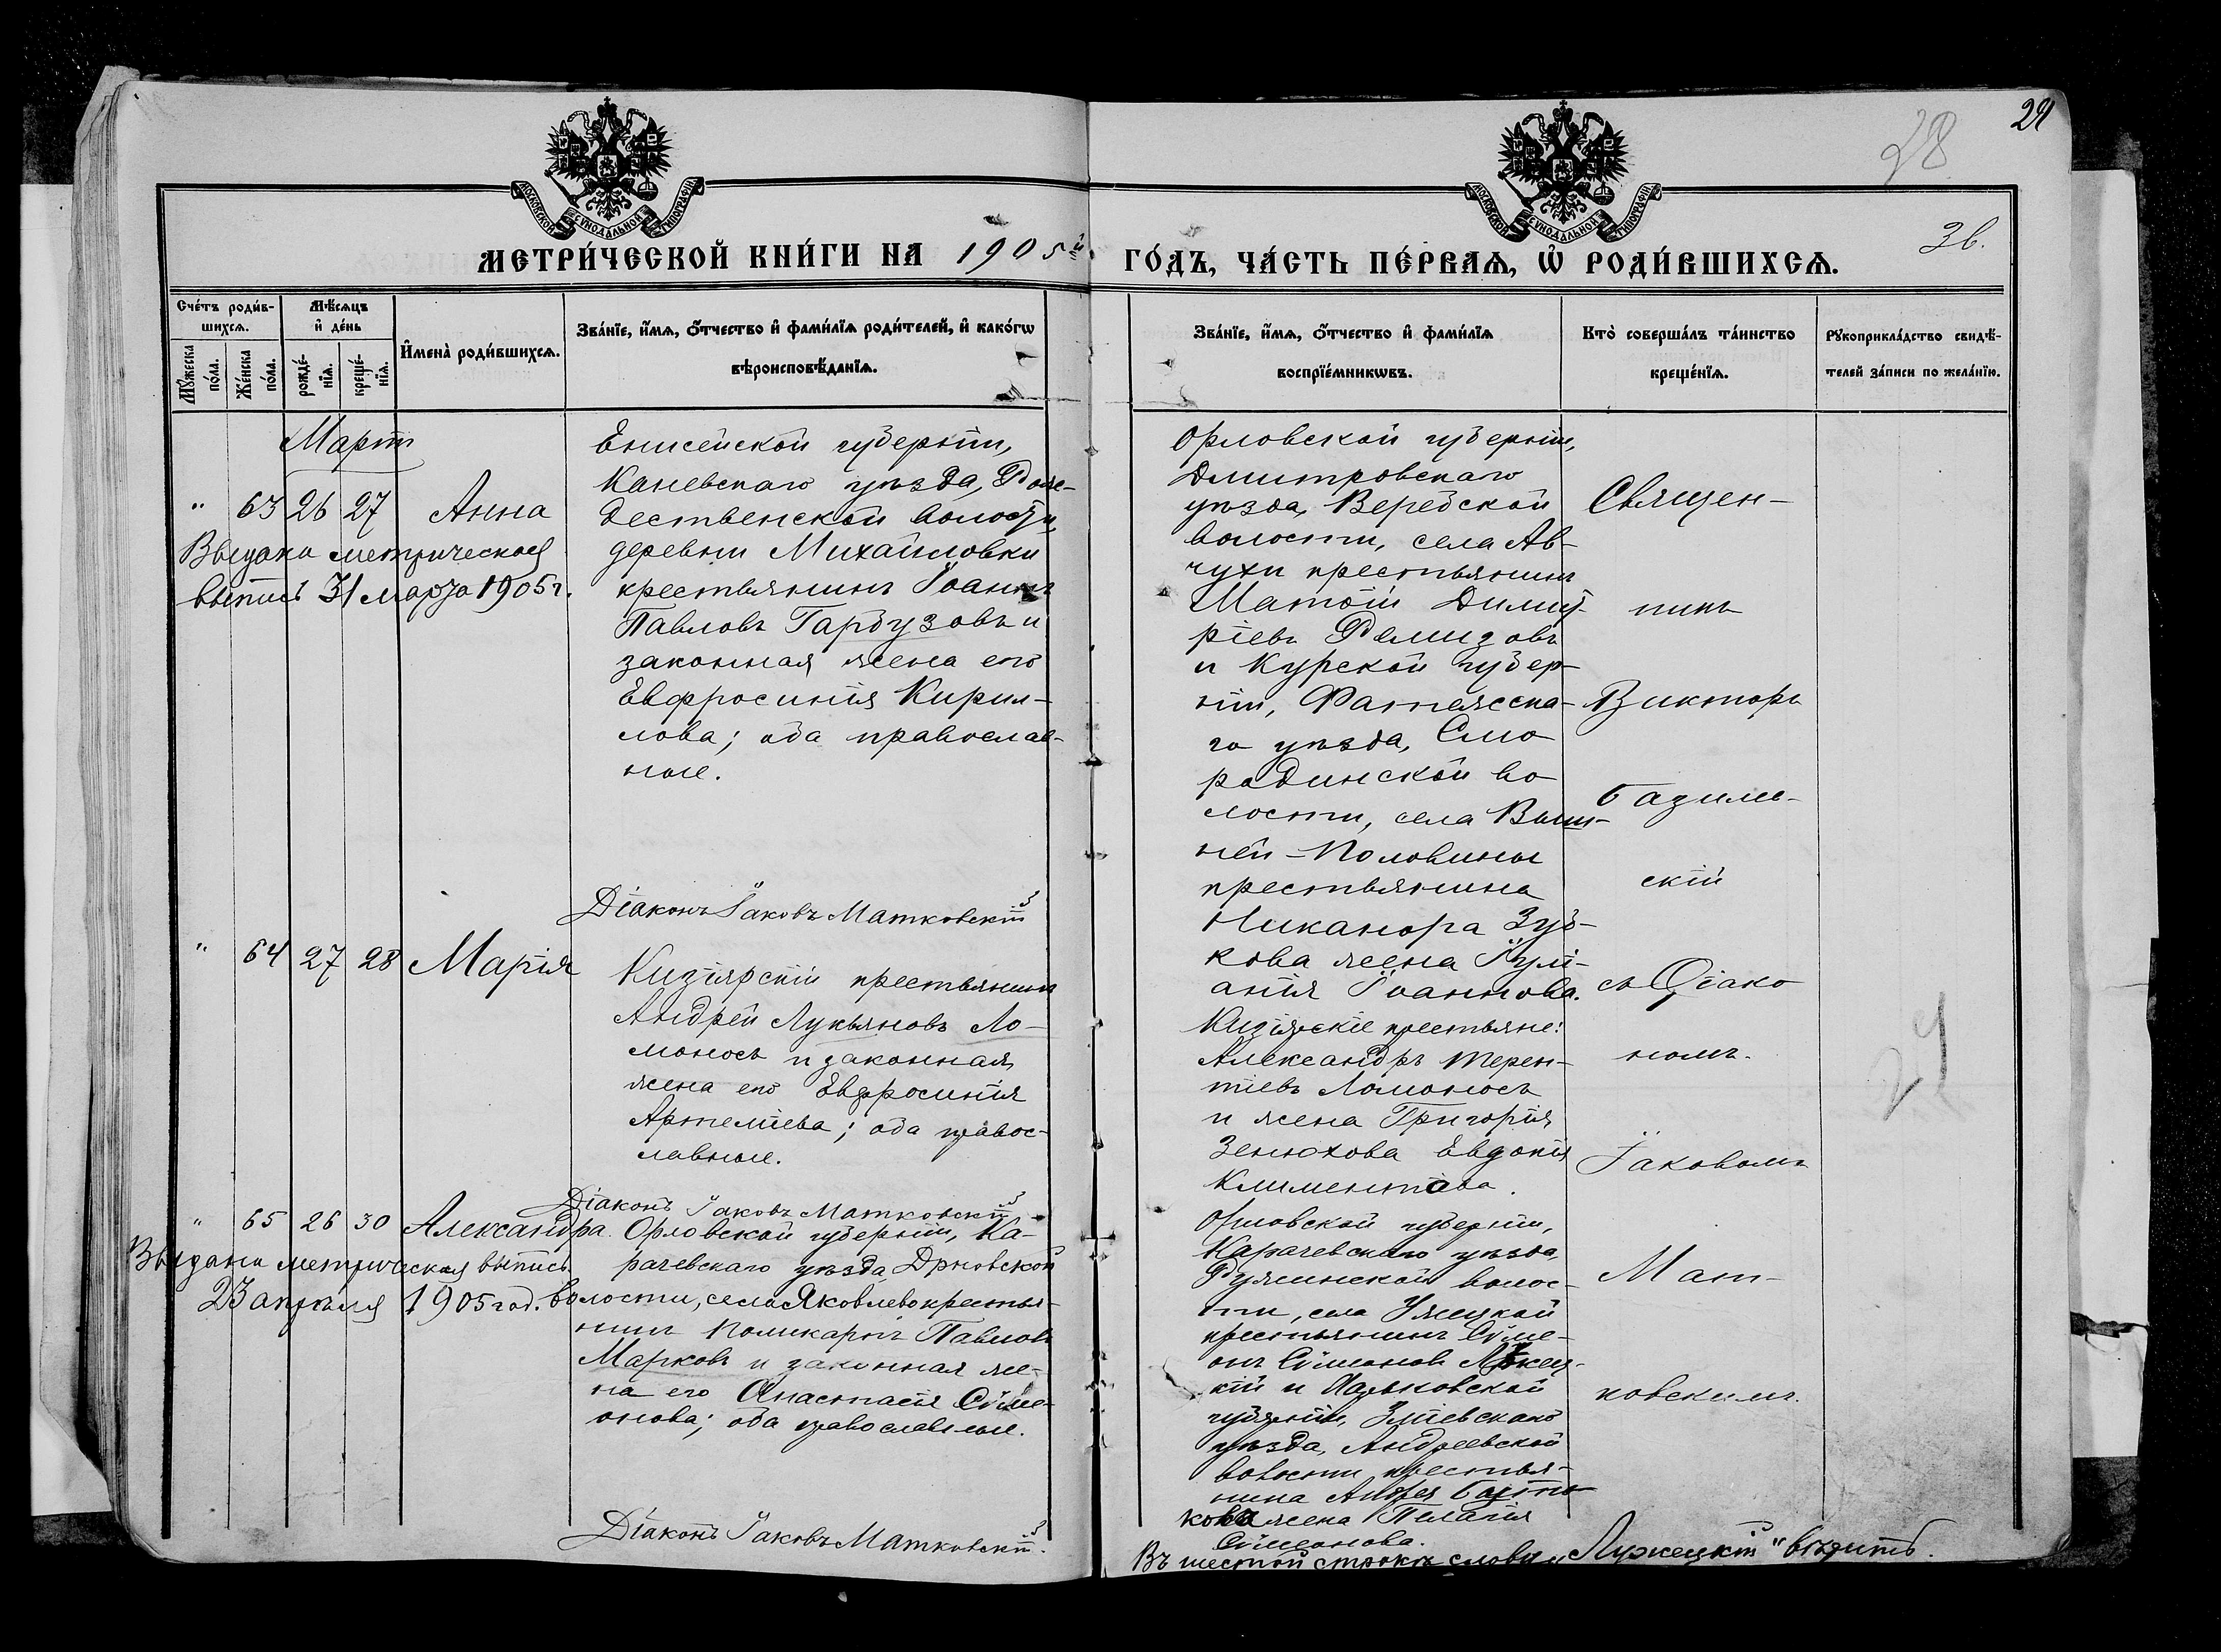 29
28
36.
МОСКОВСКОЙ СУНОДАЛЬНОЙ ТИПОГРАФІИ
МОСКОВСКОЙ СУНОДАЛЬНОЙ ТИПОГРАФІИ
МЕТРИ́ЧЕСКОЙ КНИ́ГИ НА 1905й ГО́ДЪ, ЧА́СТЬ ПЕ́РВАѦ, Ѡ҆ РОДИ́ВШИХСѦ.
Сче́тъ роди́в-
шихсѧ.
Мꙋ́жеска по́ла.
Же́нска по́ла.
Мѣ́сѧцъ
и҆ де́нь
рожде́-
нїѧ.
креще́-
нїѧ.
И҆мена̀ роди́вшихсѧ.
Зва́нїе, и҆́мѧ, ѻ҆́тчество и҆ фами́лїѧ роди́телей, и҆ како́гѡ
вѣроисповѣ́данїѧ.
Зва́нїе, и҆́мѧ, ѻ҆́тчество и҆ фами́лїѧ
воспрїе́мникѡвъ.
Кто̀ соверша́лъ та́инство
креще́нїѧ.
Рꙋкоприкла́дство свидѣ́-
телей за́писи по жела́нїю.
Мартъ
" 63 26 27 Анна
Выдана метрическая
выпись 31 марта 1905 г.
Енисейской губерніи,
Каневскаго уѣзда, Рож-
дественской волости,
деревни Михайловки
крестьянинъ Іоаннъ
Павловъ Гарбузовъ и
законная жена его
Евфросинія Кирил-
лова; оба православ-
ные.
Діаконъ Іаковъ Матковскій
Орловской губерніи,
Дмитровскаго
уѣзда, Верейской
волости, села Ав-
чухи крестьянинъ
Матѳій Димит-
ріевъ Ремизовъ
и Курской губер-
ніи, Фатежска-
го уѣзда, Смо
родинской во
лости, села Выш-
ней-Половины
крестьянина
Никанора Зуб-
кова жена Іулі-
анія Іоаннова.
Священ-
никъ
Викторъ
Базиле-
скій
съ Діако
номъ
Іаковомъ
Мат-
ковскимъ.
" 64 27 28 Марія
Кизіярскій крестьянинъ
Андрей Лукьяновъ Ло-
моносъ и законная
жена его Евфросинія
Артеміева; оба правос-
лавные.
Діаконъ Іаковъ Матковскій
Кизіярскіе крестьяне:
Александръ Терен-
тіевъ Ломоносъ
и жена Григорія
Зенюхова Евдокія
Климентова.
29
" 65 26 30 Александра.
Выдана метрическая выпись
23 апрѣля 1905 год.
Орловской губерніи, Ка-
рачевскаго уѣзда, Дрновской
волости, села Яковлево крестья-
нинъ Поликарпъ Павловъ
Марковъ и законная же-
на его Анастасія Симе-
онова; оба православные.
Діаконъ Іаковъ Матковскій.
Орловской губерніи,
Карачевскаго уѣзда,
волос-
ти, села
крестьянинъ Симе-
онъ Симеоновъ
кій и Харьковской
губерніи, Зміевскаго
уѣзда, Андреевской
волости крестья-
нина Андрея
кова жена Пелагія
Симеонова.
Въ шестой строкѣ слову „Лужецкій" вѣрить.